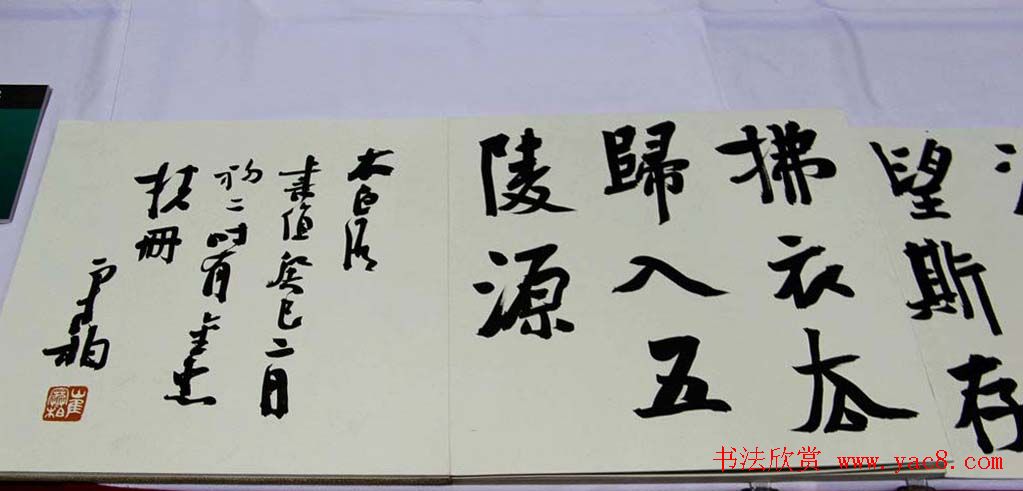 望斯存
拂衣去
歸入五
陵源
太白詩
書值癸巳二月
初二时有
冊
寒柏
崔寒柏
书法欣赏 www.yac8.com